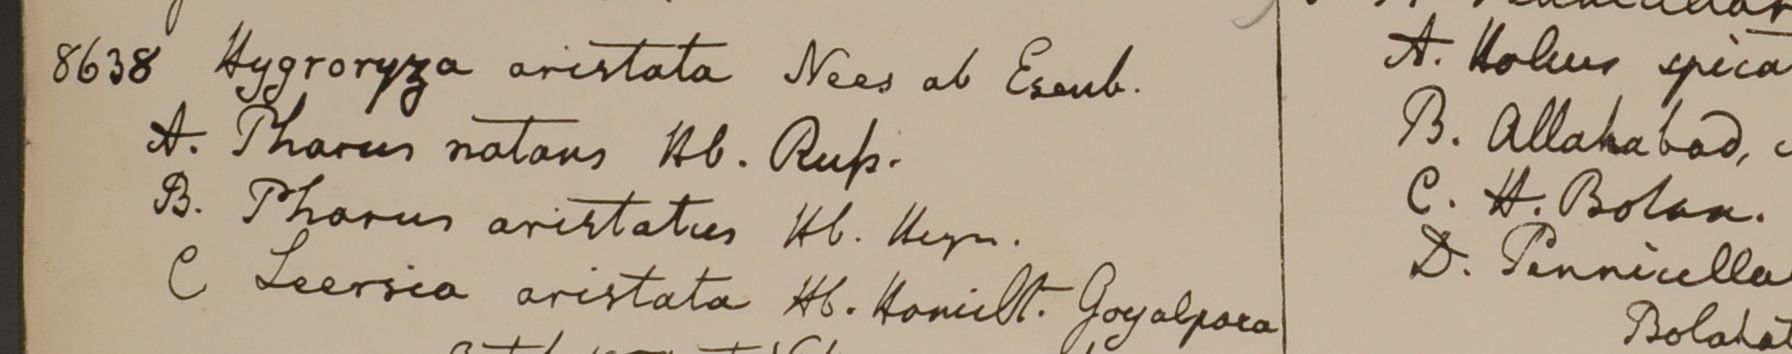 8638 Hygroryza aristata Nees ab Esenb.
A. Pharus natans Hb. Russ.
B. Pharus aristatus Hb. Heyn.
C Leersia aristata Hb. Hamilt. Goyalpara
A. Holcus spica
B. Allahabad,
C. H. Botan.
D. Pennicella